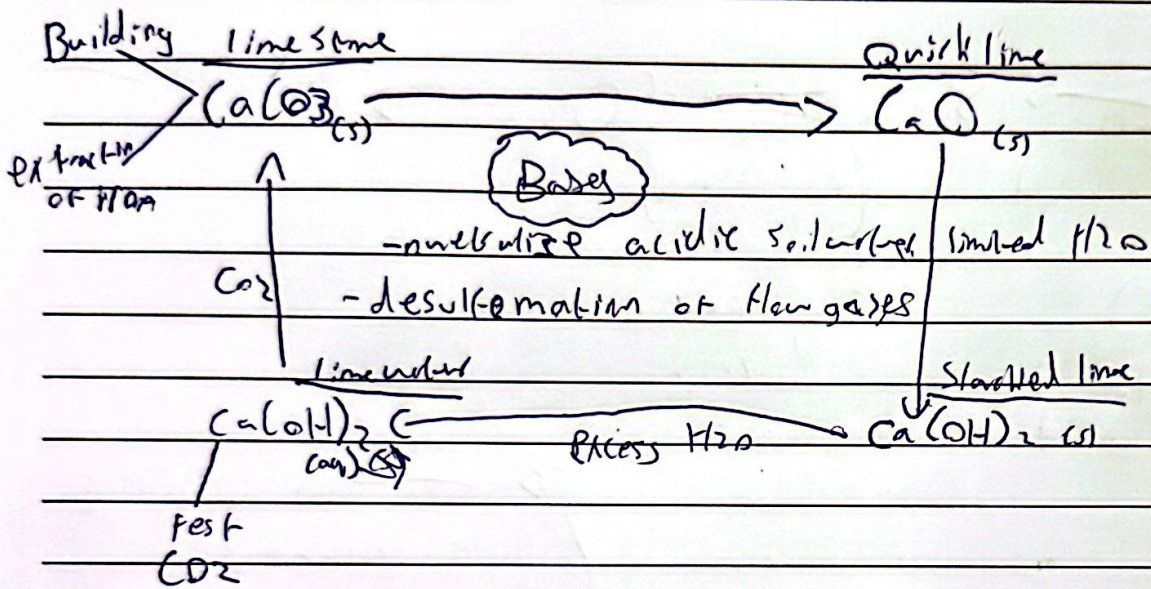 Building limestone Quick lime
CaCO3(s) CaO(s)
extraction
of iron
Bases
-neutralize acidic soil limited H2O
CO2
-desulfurnation of flew gases
limewater Slacked lime
Ca(OH)2 (aq) excess H2O Ca(OH)2 (s)
Test
CO2